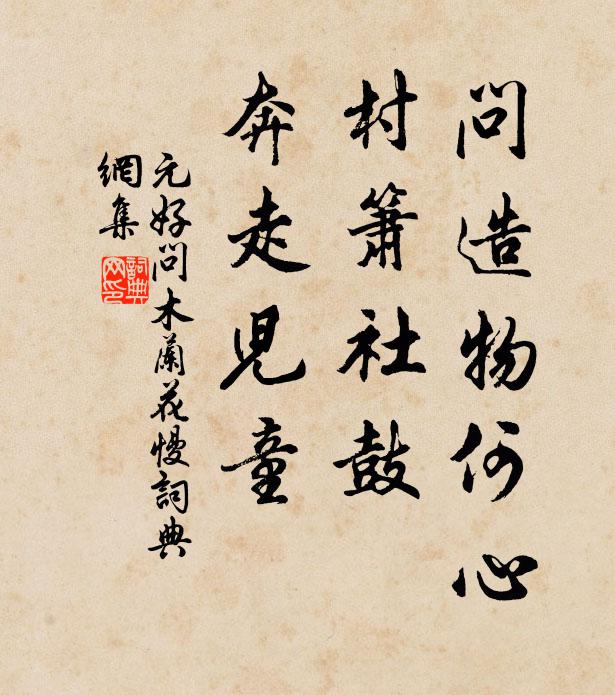 問造物何心
村簫社鼓
奔走兒童
元好問木蘭花慢詞典
網集
詞典
网印